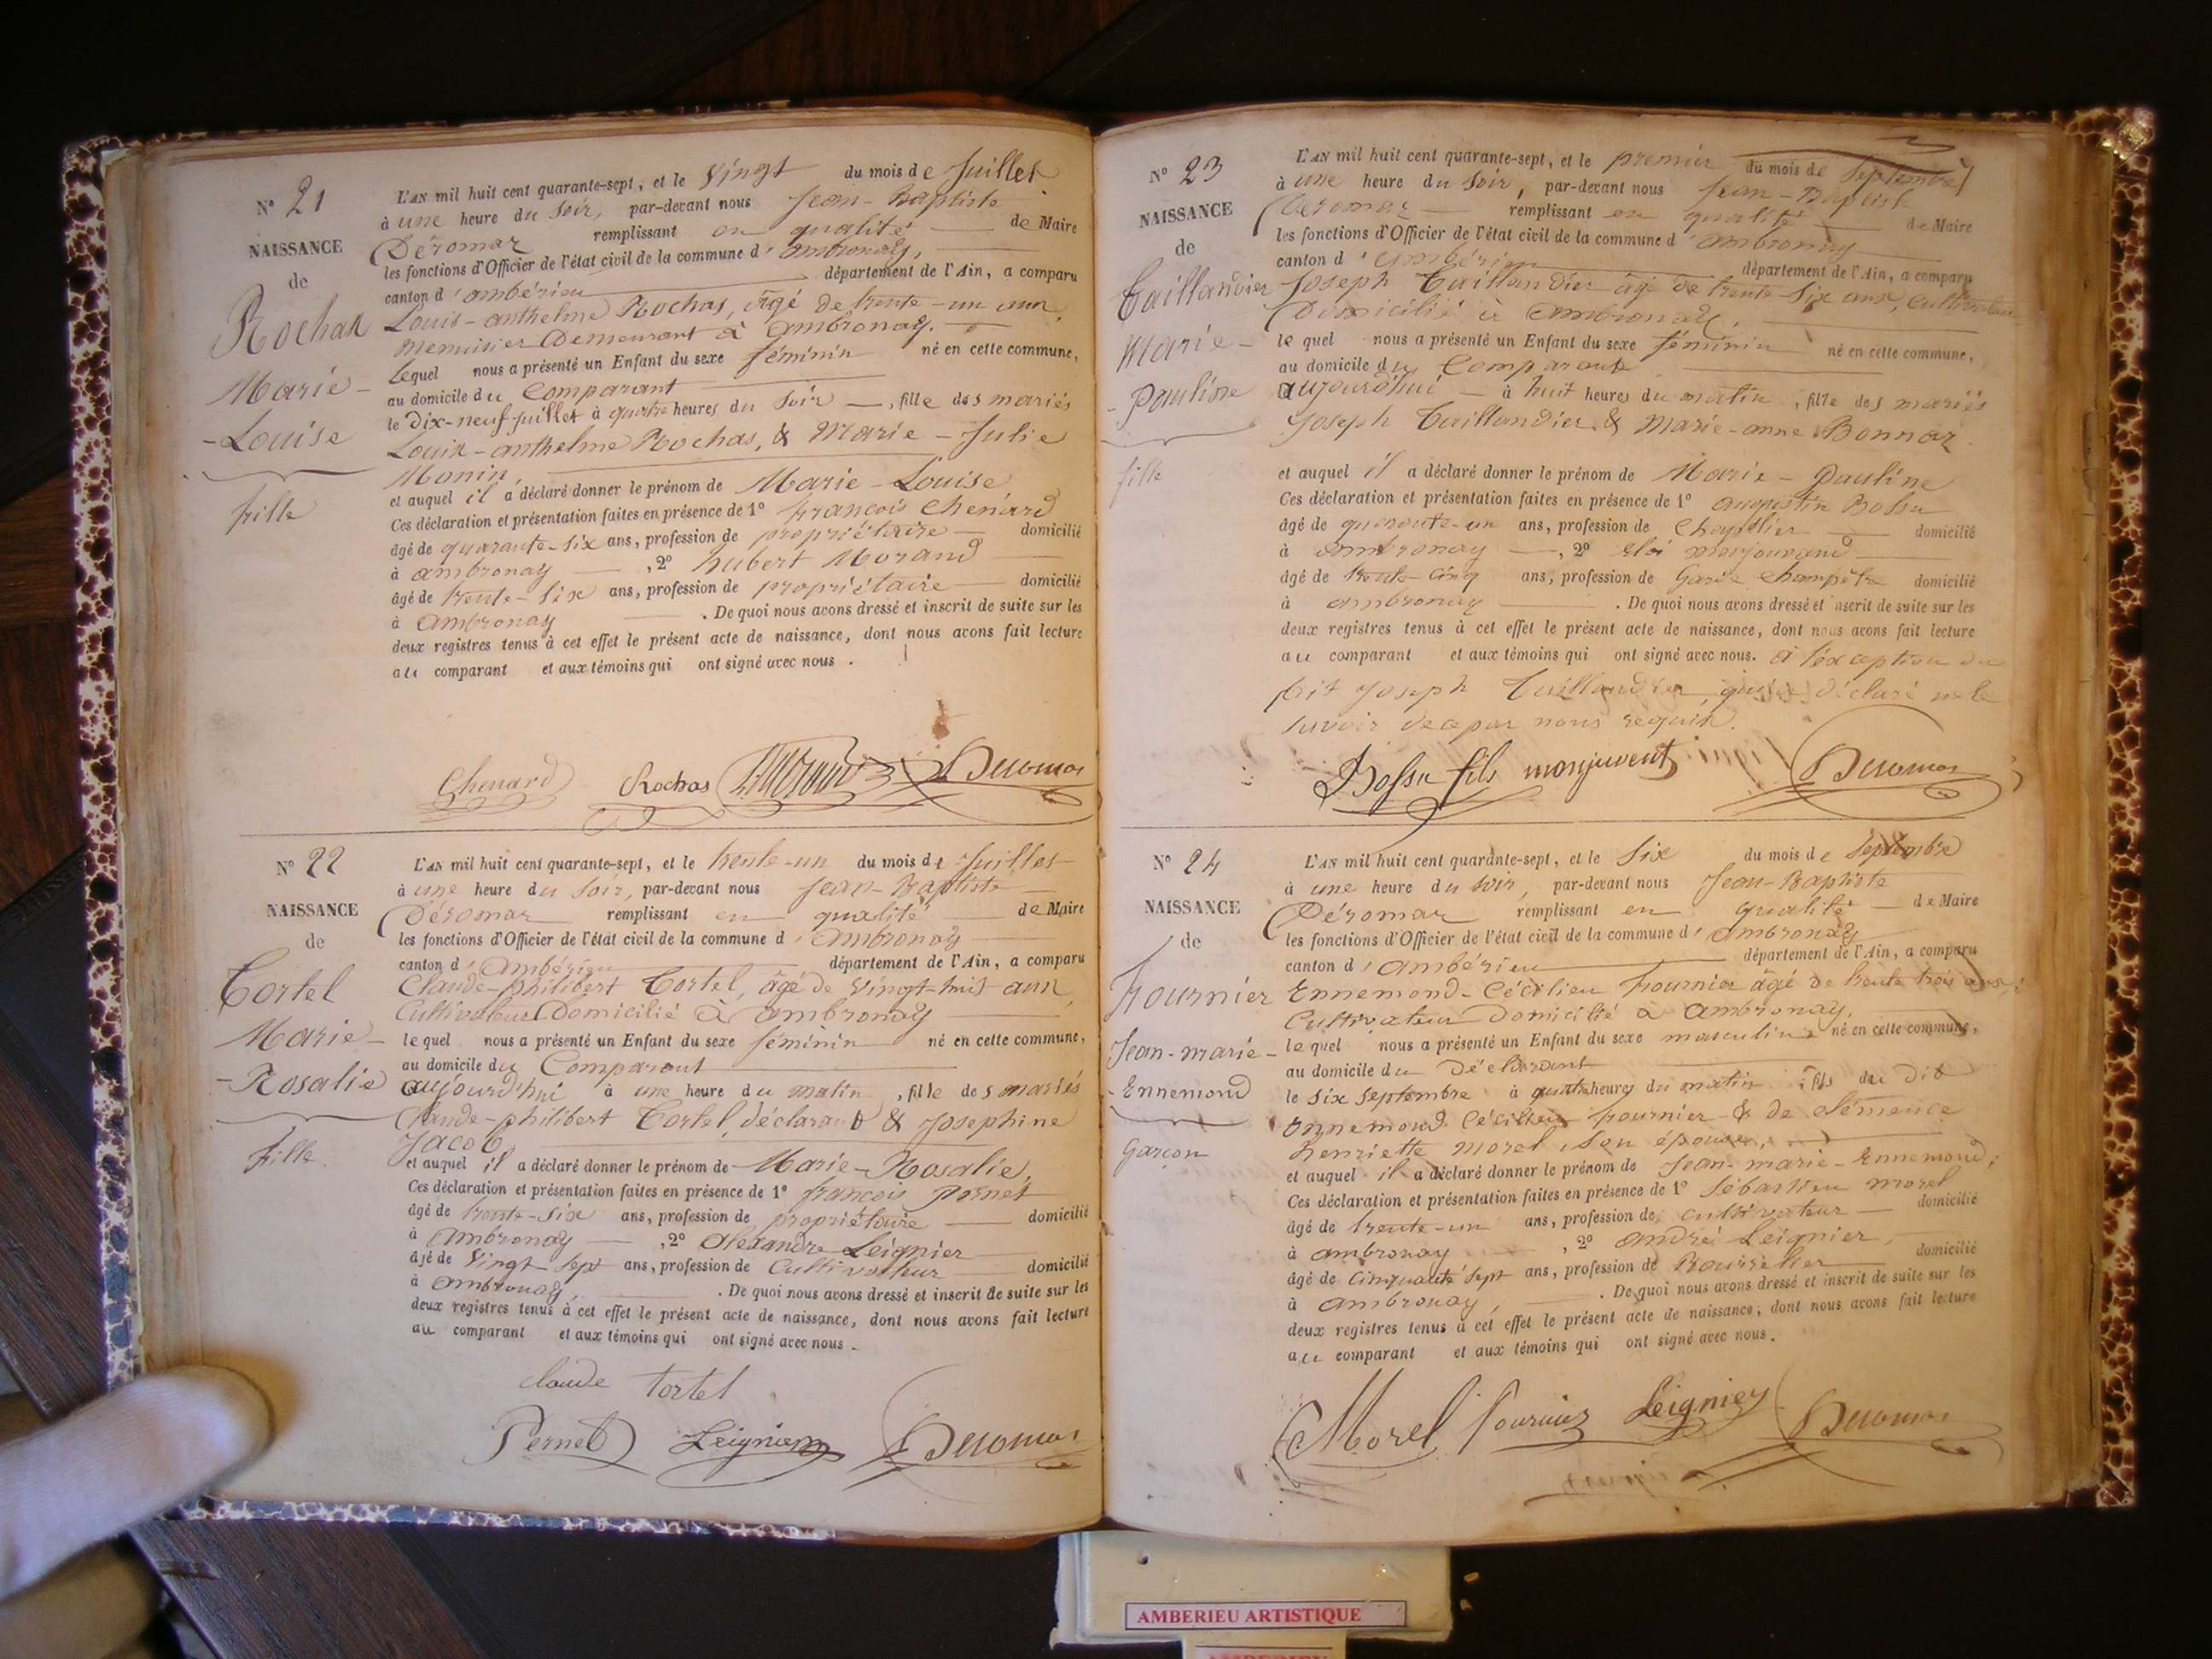 N° 21
NAISSANCE
de
Rochas
Marie-
-Louise
fille
L'AN mil huit cent quarante-sept, et le Vingt du mois de Juillet
à une heure du Soir, par-devant nous Jean-Baptiste
Déromas remplissant en qualité de Maire
les fonctions d'Officier de l'état civil de la commune d'ambronay,
canton d'ambérieu département de l'Ain, a comparu
Louis-anthelme Rochas, âgé de trente-un ans,
menuisier Demeurant à ambronay.
Lequel nous a présenté un Enfant du sexe féminin né en cette commune,
au domicile du Comparant
le Dix-neuf juillet à quatre heures du Soir, fille des mariés
Louis-anthelme Rochas, & Marie-Julie
Monin,
et auquel il a déclaré donner le prénom de Marie-Louise
Ces déclaration et présentation faites en présence de 1° françois Chenard
âgé de quarante-six ans, profession de propriétaire domicilié
à ambronay, 2° hubert Morand
âgé de trente-six ans, profession de propriétaire domicilié
à ambronay. De quoi nous avons dressé et inscrit de suite sur les
deux registres tenus à cet effet le présent acte de naissance, dont nous avons fait lecture
au comparant et aux témoins qui ont signé avec nous.
Chenard Rochas Deromas
N° 22
NAISSANCE
de
Tortel
Marie-
-Rosalie
fille.
L'AN mil huit cent quarante-sept, et le trente-un du mois de Juillet
à une heure du Soir, par-devant nous Jean-Baptiste
Déromas remplissant en qualité de Maire
les fonctions d'Officier de l'état civil de la commune d'ambronay
canton d'ambérieu département de l'Ain, a comparu
Claude-philibert Tortel, âgé de Vingt-huit ans,
Cultivateur Domicilié à ambronay
lequel nous a présenté un Enfant du sexe féminin né en cette commune,
au domicile du Comparant
aujourd'hui à une heure du matin, fille des mariés
Claude-philibert Tortel, déclarant & Josephine
Jacob,
et auquel il a déclaré donner le prénom de Marie-Rosalie,
Ces déclaration et présentation faites en présence de 1° françois pernet
âgé de trente-six ans, profession de propriétaire domicilié
à ambronay, 2° alexandre Leignier
âgé de Vingt-sept ans, profession de Cultivateur domicilié
à ambronay, . De quoi nous avons dressé et inscrit de suite sur les
deux registres tenus à cet effet le présent acte de naissance, dont nous avons fait lecture
au comparant et aux témoins qui ont signé avec nous.
Claude Tortel
Pernet Leignier Deromas
N° 23
NAISSANCE
de
Taillandier
Marie-
-Pauline
fille
L'AN mil huit cent quarante-sept, et le premier du mois de Septembre
à une heure du Soir, par-devant nous Jean-Baptiste
Déromas remplissant en qualité de Maire
les fonctions d'Officier de l'état civil de la commune d'ambronay
canton d'ambérieu département de l'Ain, a comparu
Joseph Taillandier âgé de trente-six ans, Cultivateur
Domicilié à ambronay,
lequel nous a présenté un Enfant du sexe féminin né en cette commune,
au domicile du Comparant
aujourd'hui à huit heures du matin, fille des mariés
Joseph Taillandier & Marie-anne Bonnaz.
et auquel il a déclaré donner le prénom de Marie-Pauline
Ces déclaration et présentation faites en présence de 1° augustin Bossu
âgé de quarante-un ans, profession de Chapelier domicilié
à ambronay, 2° Eloi monjouvand
âgé de trente-cinq ans, profession de Garde Champêtre domicilié
à ambronay. De quoi nous avons dressé et inscrit de suite sur les
deux registres tenus à cet effet le présent acte de naissance, dont nous avons fait lecture
au comparant et aux témoins qui ont signé avec nous. à l'exception du
dit Joseph Taillandier, qui a déclaré ne le
savoir de ce par nous requis.
Bossu fils monjuvent Deromas
N° 24
NAISSANCE
de
fournier
Jean-marie-
-Ennemond
Garçon
L'AN mil huit cent quarante-sept, et le Six du mois de Septembre
à une heure du soir, par-devant nous Jean-Baptiste
Déromas remplissant en qualité de Maire
les fonctions d'Officier de l'état civil de la commune d'ambronay
canton d'ambérieu département de l'Ain, a comparu
Ennemond-Cécilien fournier âgé de trente trois ans,
Cultivateur Domicilié à ambronay,
lequel nous a présenté un Enfant du sexe masculin né en cette commune,
au domicile du Déclarant
le six septembre à quatre heures du matin, fils du dit
Ennemond Cécilien fournier & de Clémence
henriette morel, son épouse,
et auquel il a déclaré donner le prénom de Jean-marie-Ennemond;
Ces déclaration et présentation faites en présence de 1° Sébastien morel
âgé de trente-un ans, profession de cultivateur domicilié
à ambronay, 2° andré Leignier,
âgé de cinquante sept ans, profession de Bourrelier domicilié
à ambronay, . De quoi nous avons dressé et inscrit de suite sur les
deux registres tenus à cet effet le présent acte de naissance, dont nous avons fait lecture
au comparant et aux témoins qui ont signé avec nous.
Morel fournier Leignier Deromas
AMBERIEU ARTISTIQUE